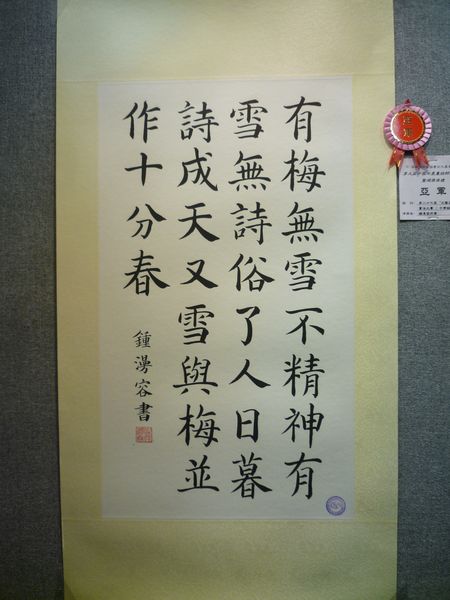 有梅無雪不精神有
雪無詩俗了人日暮
詩成天又雪與梅並
作十分春
鍾漫容書
亞軍